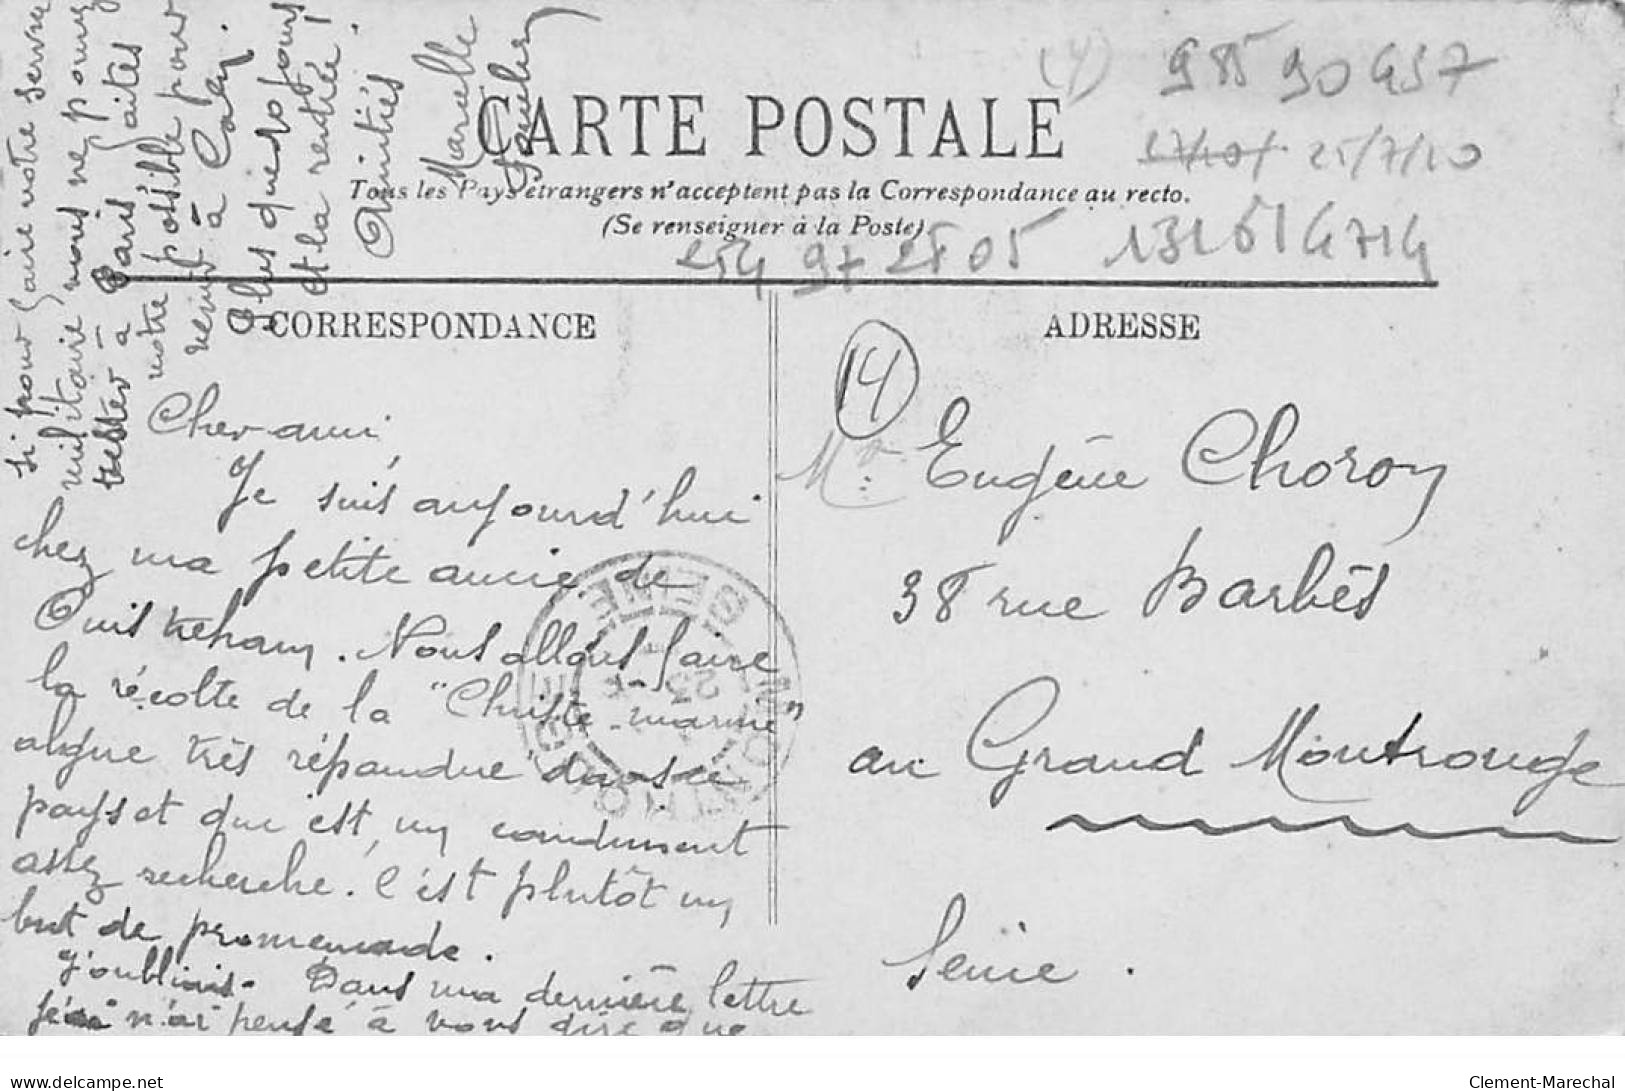 CARTE POSTALE
Tous les Pays étrangers n'acceptent pas la Correspondance au recto.
(Se renseigner à la Poste)
25/7/10
CORRESPONDANCE
Cher ami
Je suis aujourd'hui
chez ma petite amie de
Ouistreham. Nous allons faire
la récolte de la "Christe-marine"
algue très répandue dans ce
pays et qui est un condiment
assez recherché. C'est plutôt un
but de promenade.
J'oubliais. Dans ma dernière lettre
je n'ai pensé à vous dire que
si pour faire votre service
militaire vous ne pouvez
rester à Paris faites
votre possible pour
venir à Caen.
Plus que 10 jours
et la rentrée!
Amitiés
Marcelle
ADRESSE
14
Mr Eugène Choroy
38 rue Barbès
au Grand Montrouge
Seine.
delcampe.net
Clement-Marechal